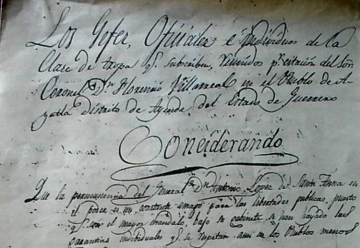 Los Gefes, Oficiales e individuos de la
Clase de tropa q. subscriben, reunidos p. citación del Sor.
Coronel Dn. Florencio Villarreal en el Pueblo de A-
yutla distrito de Ayutla, del Estado de Guerrero
Considerando
Que la permanencia del General Dn. Antonio Lopez de Santa Anna en
el poder es un constante amago para las libertades publicas, puesto
q. con el mayor escandalo, bajo su gobierno se han hollado las
garantias individuales q. se respetan aun en los Paises menos